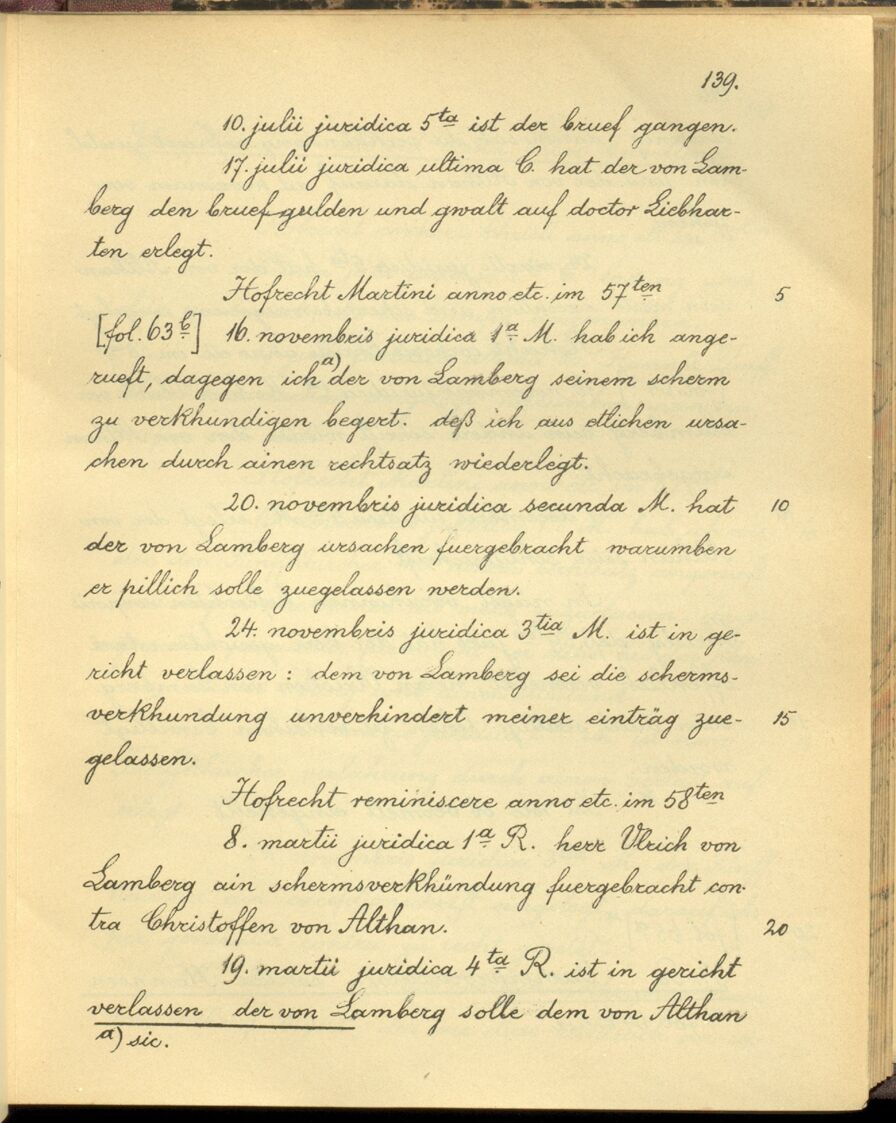 139.
10. julii juridica 5ta ist der brief gangen.
17. julii juridica ultima C. hat der von Lam-
berg den bruefgulden und gwalt auf doctor Liebhar-
ten erlegt.
Hofrecht Martini anno etc. im 57ten 5
[fol. 63b] 16. novembris juridica 1a M. hab ich ange-
rueft, dagegen ich a) der von Lamberg seinem scherm
zu verkhundigen begert. deß ich aus etlichen ursa-
chen durch ainen rechtsatz wiederlegt.
20. novembris juridica secunda M. hat 10
der von Lamberg ursachen fuergebracht warumben
er pillich solle zuegelassen werden.
24. novembris juridica 3tia M. ist in ge-
richt verlassen : dem von Lamberg sei die scherms-
verkhundung unverhindert meiner einträg zue- 15
gelassen.
Hofrecht reminiscere anno etc. im 58ten
8. martii juridica 1a R. herr Ulrich von
Lamberg ain schermsverkhündung fuergebracht con-
tra Christoffen von Althan. 20
19. martii juridica 4ta R. ist in gericht
verlassen der von Lamberg solle dem von Althan
a) sic.